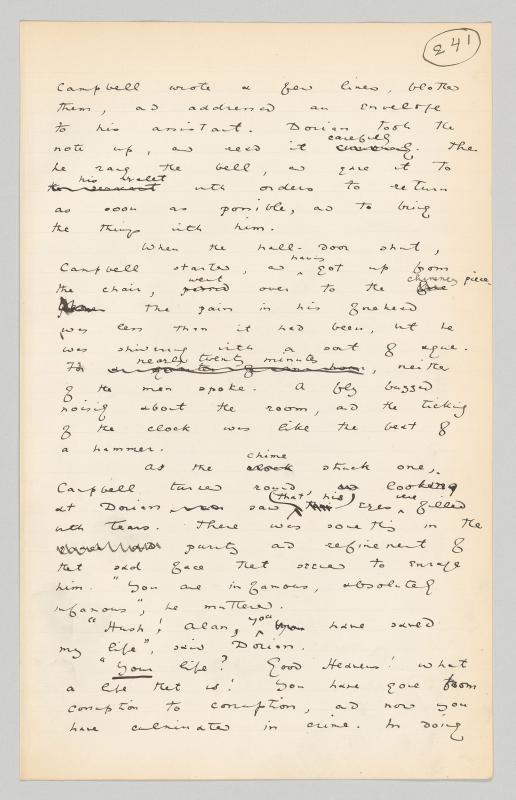 241
Campbell wrote a few lines, blotted
them, and addressed an envelope
to his assistant. Dorian took the
note up, and read it carefully. Then
he rang the bell, and gave it to
his valet with orders to return
as soon as possible, and to bring
the things with him.
When the hall-door shut,
Campbell started, and having got up from
the chair, went over to the chimney-piece.
the pain in his forehead
was less than it had been, but he
was shivering with a sort of ague.
For nearly twenty minutes, neither
of the men spoke. A fly buzzed
noisily about the room, and the ticking
of the clock was like the beat of
a hammer.
As the chime struck one,
Campbell turned round, looking
at Dorian saw that his eyes were filled
with tears. There was something in the
purity and refinement of
that sad face that seemed to enrage
him. "You are infamous, absolutely
infamous", he muttered.
"Hush! Alan, you have saved
my life", said Dorian.
"Your life? Good Heavens! what
a life that is! You have gone from
corruption to corruption, and now you
have culminated in crime. In doing